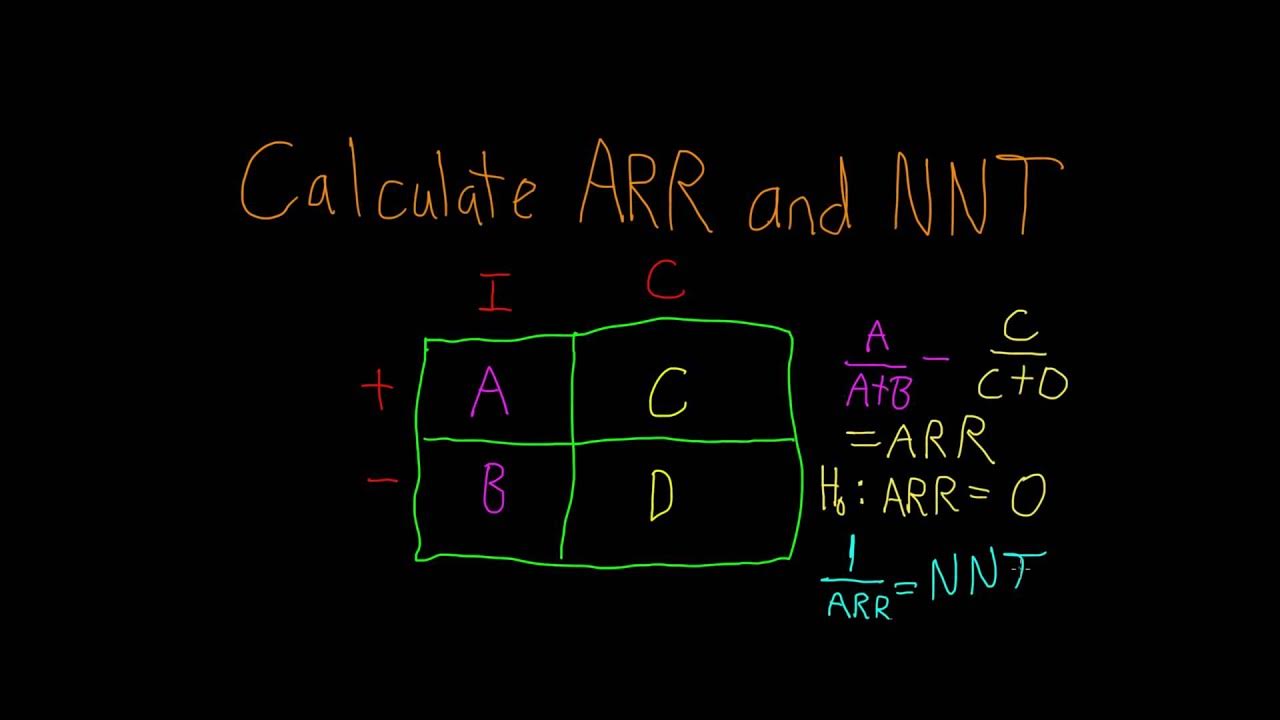 Calculate ARR and NNT
I C
+ A C
- B D
A/A+B - C/C+D
= ARR
H₀: ARR = 0
1/ARR = NNT